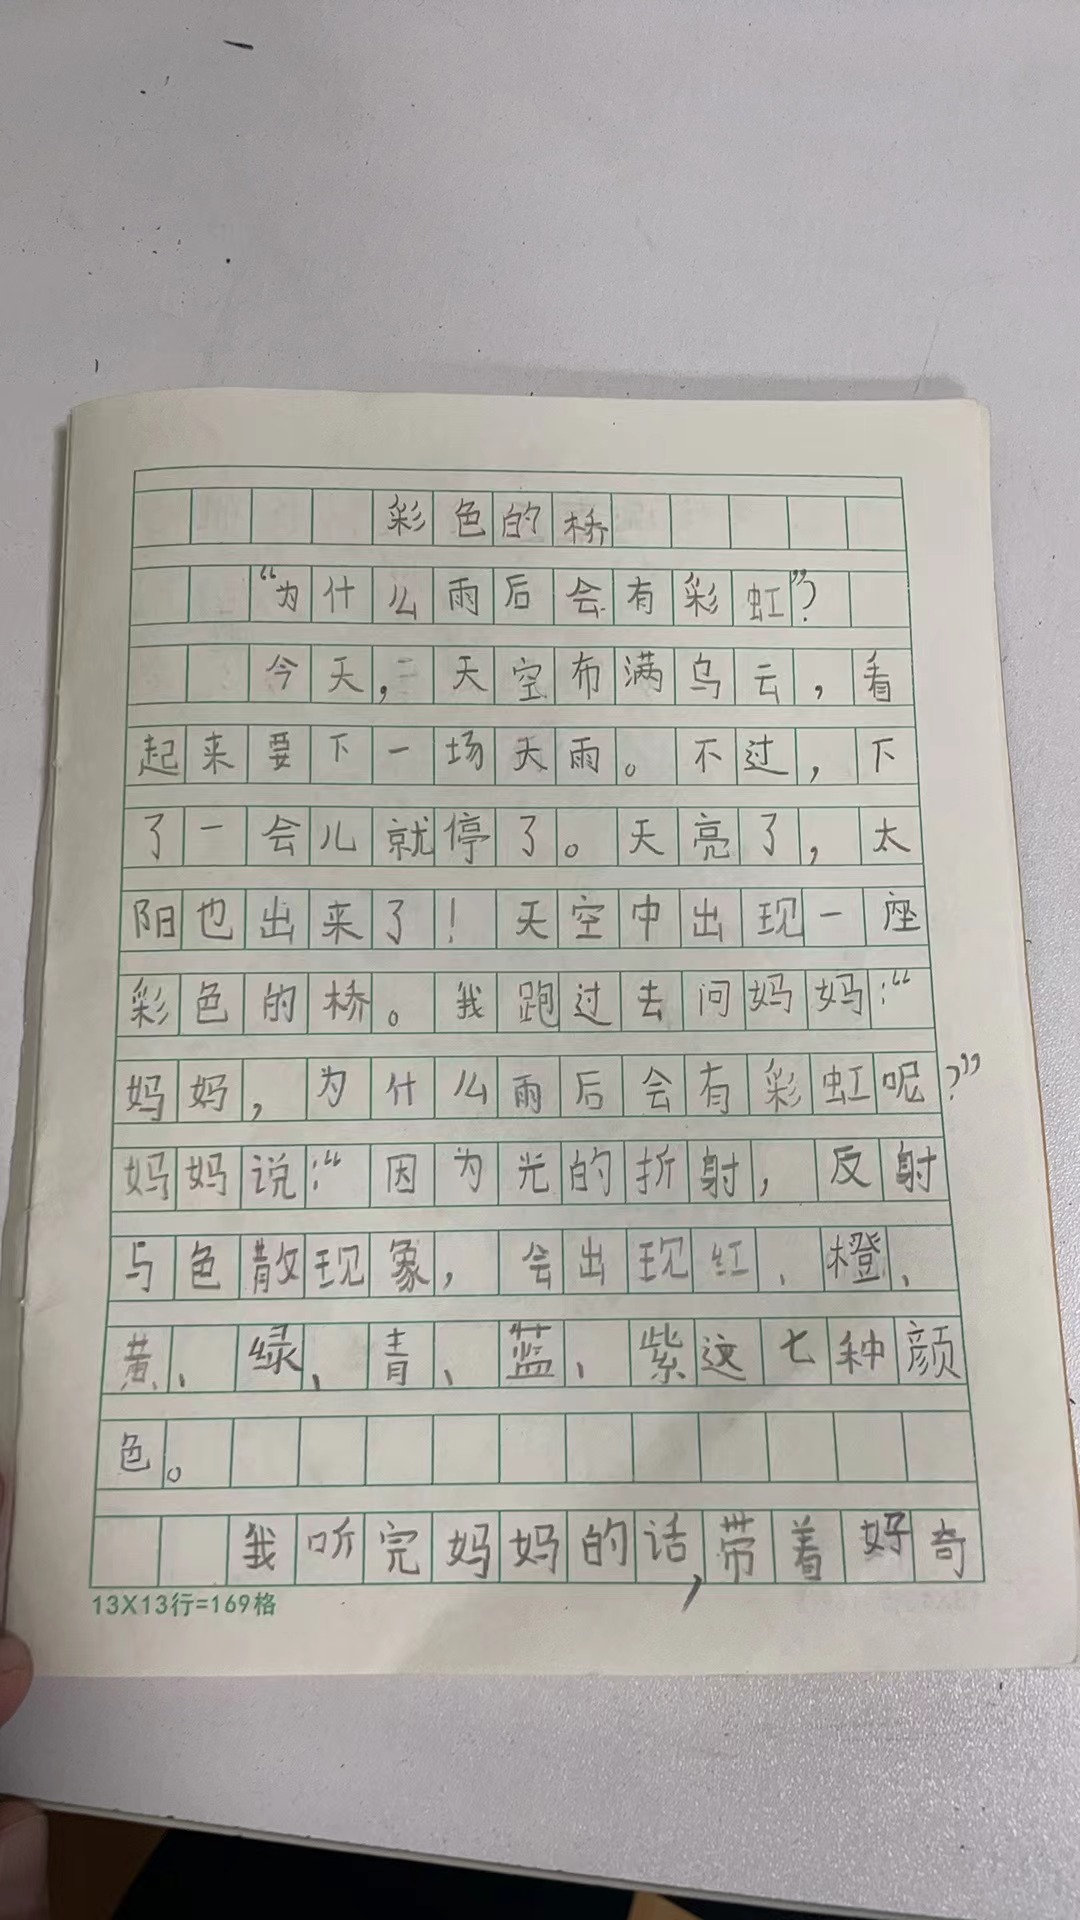 彩色的桥
“为什么雨后会有彩虹”?
今天,天空布满乌云,看
起来要下一场天雨。不过,下
了一会儿就停了。天亮了,太
阳也出来了!天空中出现一座
彩色的桥。我跑过去问妈妈:“
妈妈,为什么雨后会有彩虹呢?”
妈妈说:“因为光的折射,反射
与色散现象,会出现红、橙、
黄、绿、青、蓝、紫这七种颜
色。
我听完妈妈的话,带着好奇
13X13行=169格